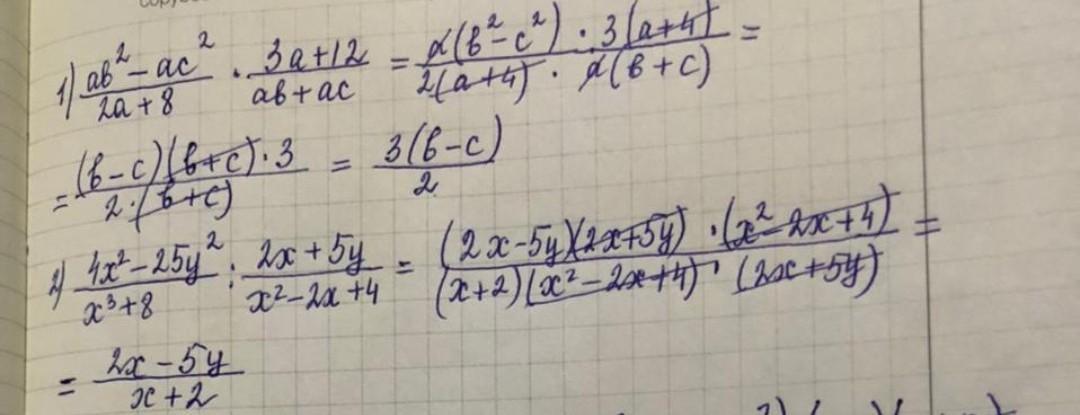 1) \frac{ab^2 - ac^2}{2a + 8} \cdot \frac{3a + 12}{ab + ac} = \frac{a(b^2 - c^2) \cdot 3(a + 4)}{2(a + 4) \cdot a(b + c)} =
= \frac{(b - c)(b + c) \cdot 3}{2 \cdot (b + c)} = \frac{3(b - c)}{2}
2) \frac{4x^2 - 25y^2}{x^3 + 8} : \frac{2x + 5y}{x^2 - 2x + 4} = \frac{(2x - 5y)(2x + 5y) \cdot (x^2 - 2x + 4)}{(x + 2)(x^2 - 2x + 4) \cdot (2x + 5y)} =
= \frac{2x - 5y}{x + 2}